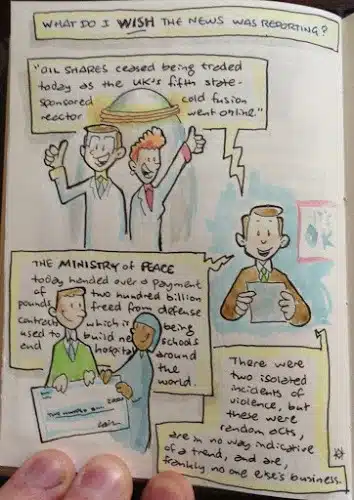 WHAT DO I WISH THE NEWS WAS REPORTING?
"OIL SHARES ceased being traded
today as the UK's fifth state-
sponsored cold fusion
reactor went online."
THE MINISTRY of PEACE
today handed over a payment
of two hundred billion
pounds freed from defense
contracts which is being
used to build new schools
end hospitals around
the world.
There were
two isolated
incidents of
violence, but
these were
random acts,
are in no way indicative
of a trend, and are,
frankly no one else's business.